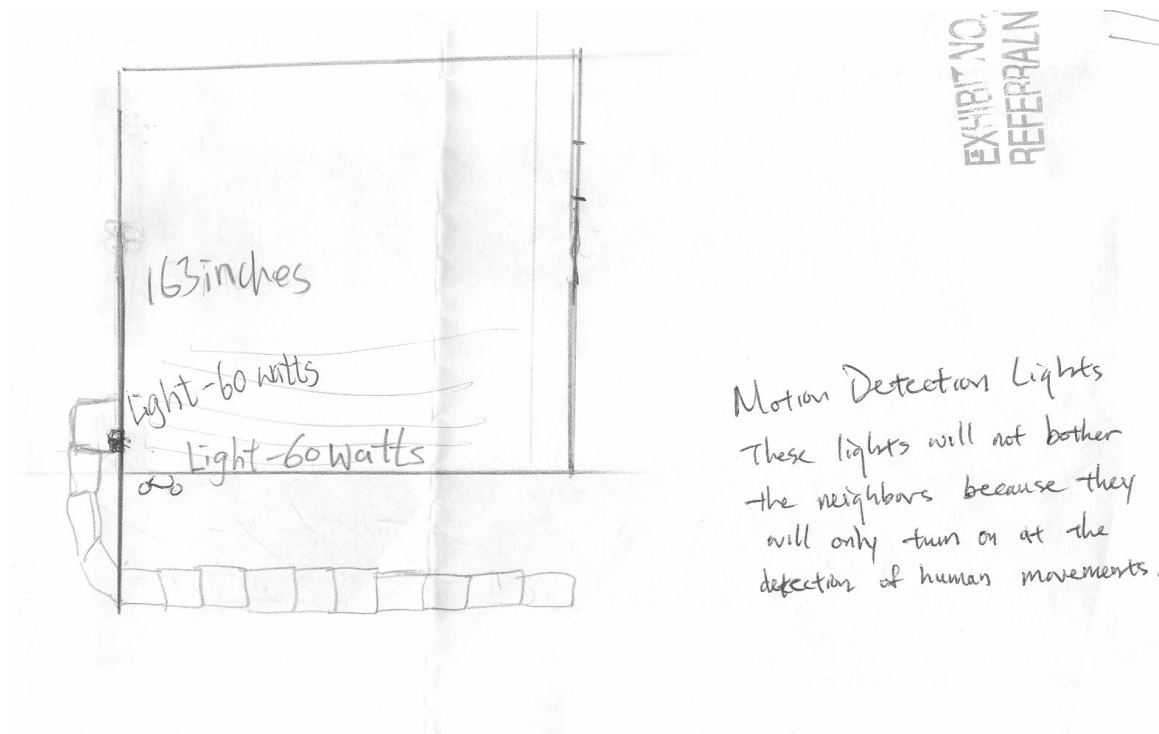 EXHIBIT NO.
REFERRAL N
163 inches
Light-60 watts
Light-60 watts
Motion Detection Lights
These lights will not bother
the neighbors because they
will only turn on at the
detection of human movements.